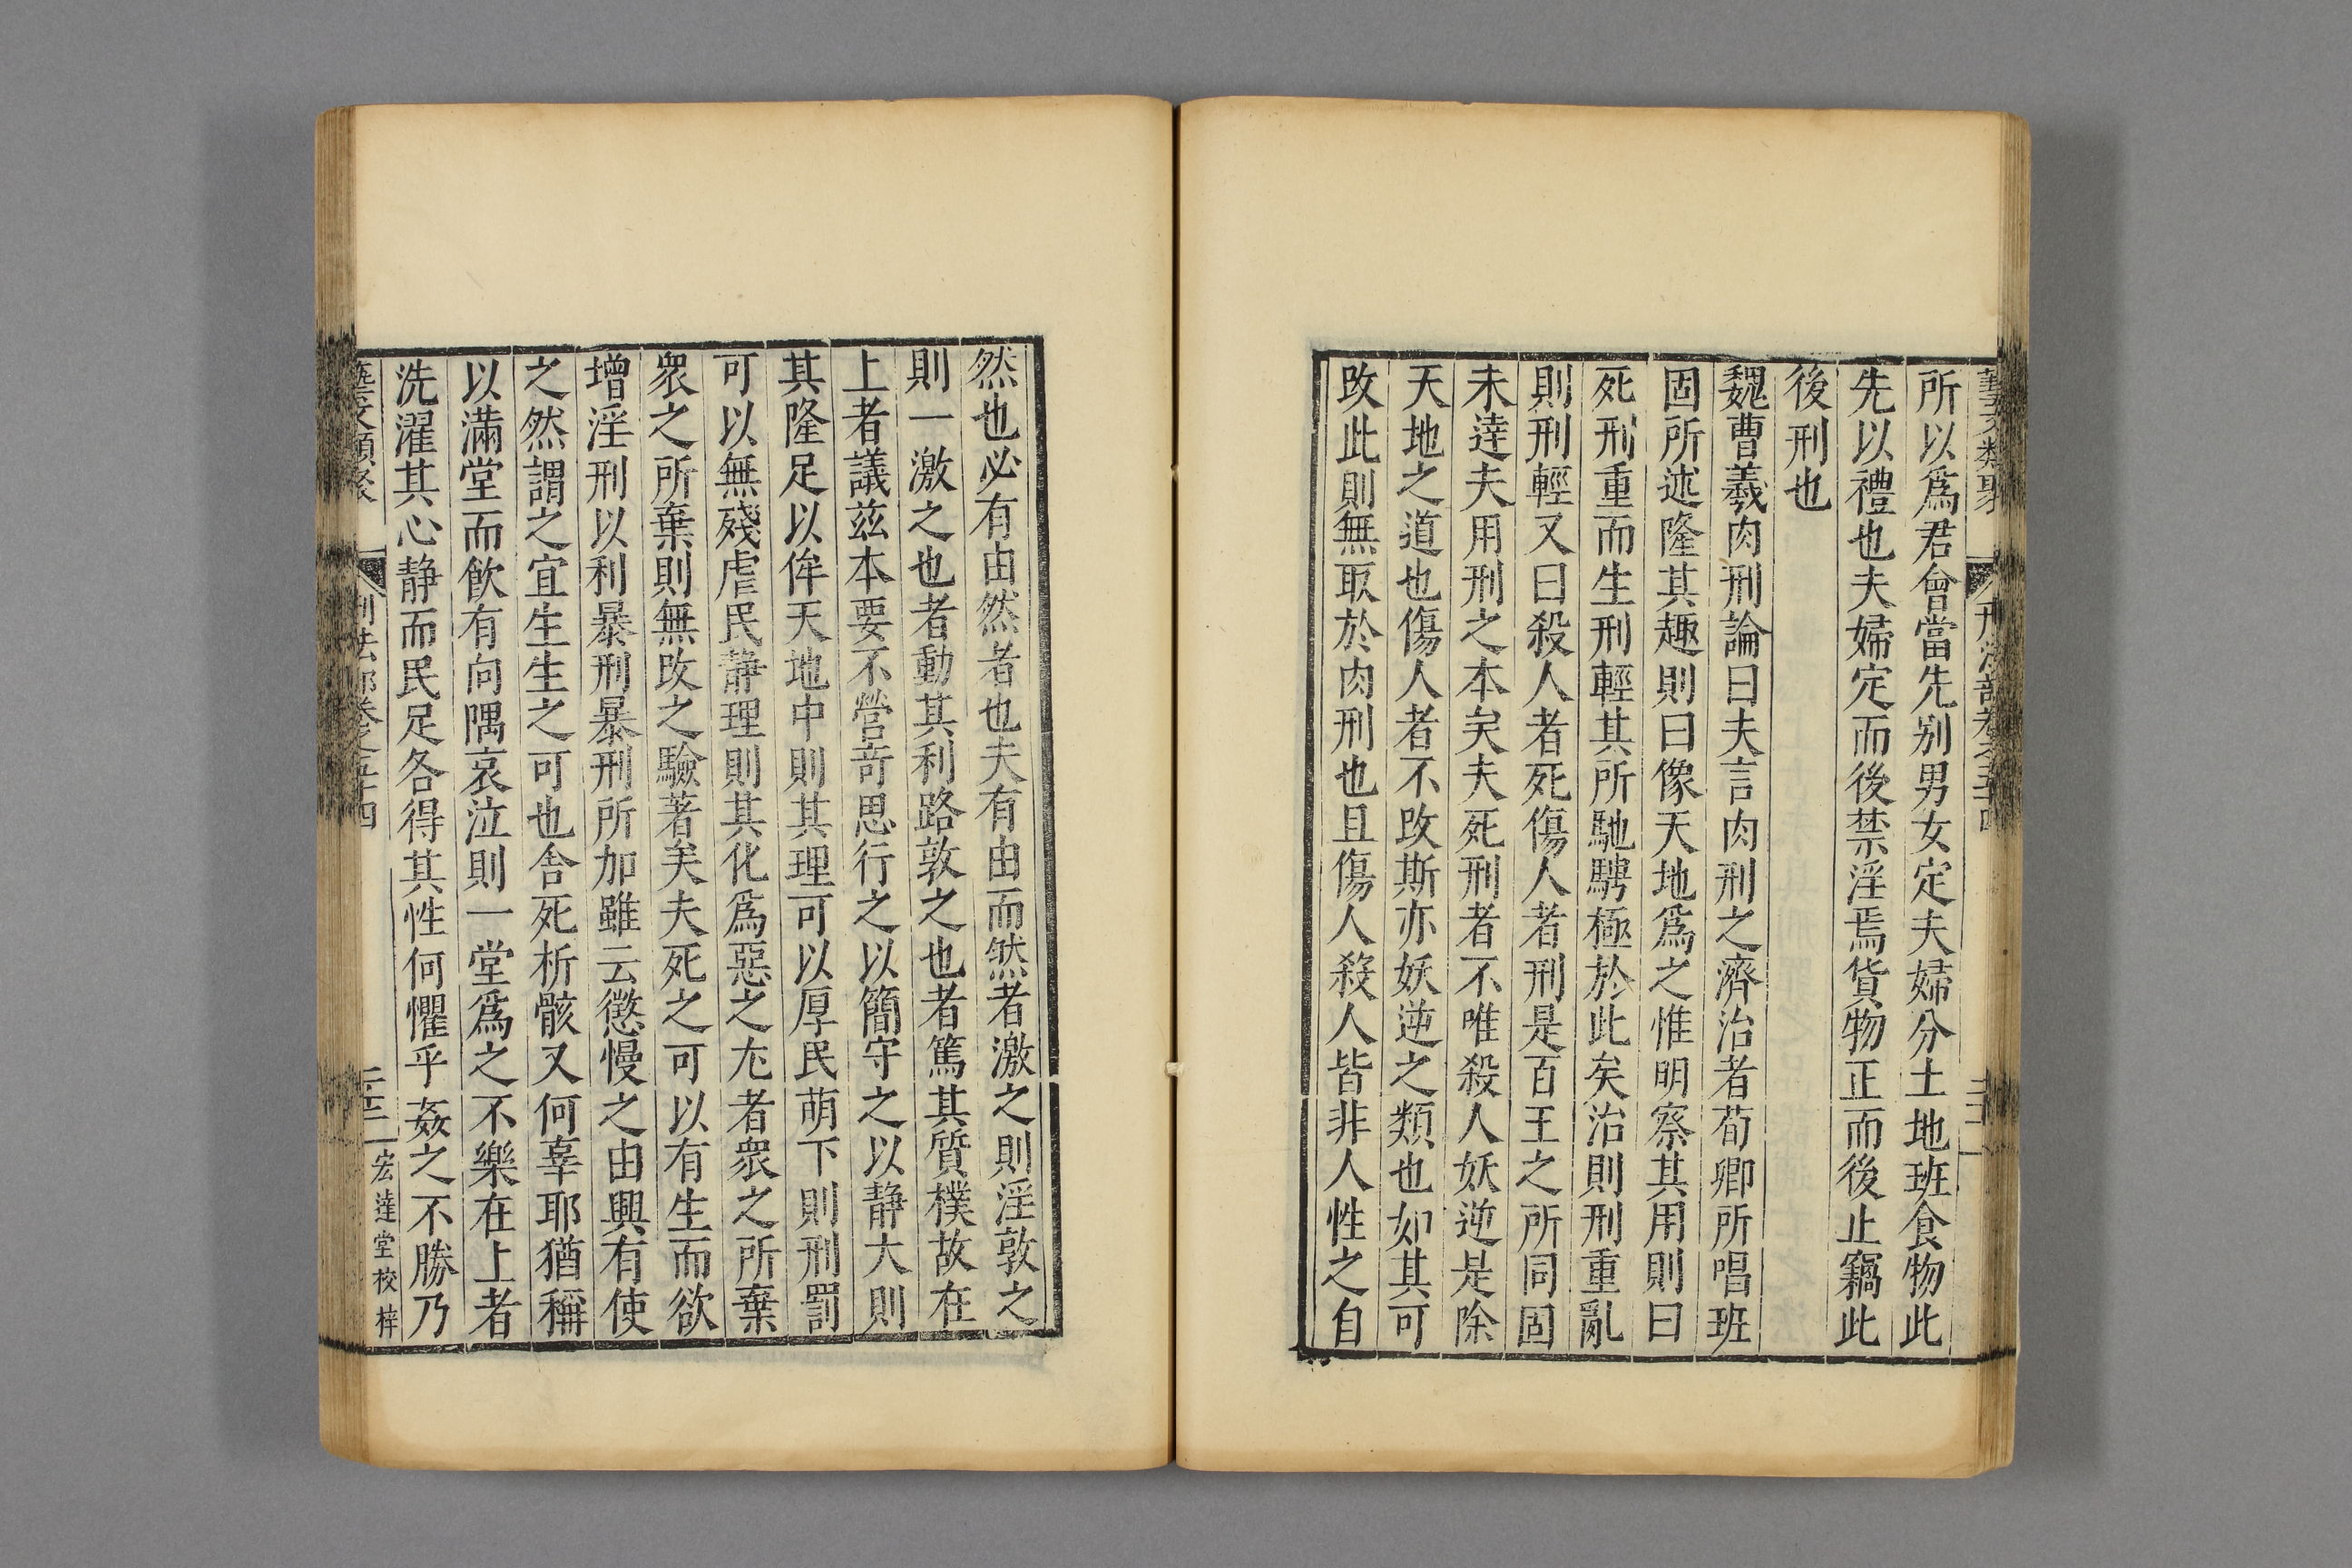 藝文類聚 刑法部卷之五十四
所以爲君會當先别男女定夫婦分土地班食物此
先以禮也夫婦定而後禁淫焉貨物正而後止竊此
後刑也
魏曹羲肉刑論曰夫言肉刑之濟治者荀卿所唱班
固所述隆其趣則曰像天地爲之惟明察其用則曰
死刑重而生刑輕其所馳騁極於此矣治則刑重亂
則刑輕又曰殺人者死傷人者刑是百王之所同固
未逹夫用刑之本矣夫死刑者不唯殺人妖逆是除
天地之道也傷人者不改斯亦妖逆之類也如其可
改此則無取於肉刑也且傷人殺人皆非人性之自
然也必有由然者也夫有由而然者激之則淫敦之
則一激之也者動其利路敦之也者篤其質樸故在
上者議兹本要不營竒思行之以簡守之以静大則
其隆足以侔天地中則其理可以厚民萌下則刑罰
可以無殘虐民静理則其化爲惡之尤者衆之所棄
衆之所棄則無改之驗著矣夫死之可以有生而欲
增淫刑以利暴刑暴刑所加雖云懲慢之由興有使
之然謂之宜生生之可也舍死析骸又何辜耶猶稱
以滿堂而飲有向隅哀泣則一堂爲之不樂在上者
洗濯其心静而民足各得其性何懼乎姦之不勝乃
藝文類聚 刑法部卷之五十四 宏逹堂校梓